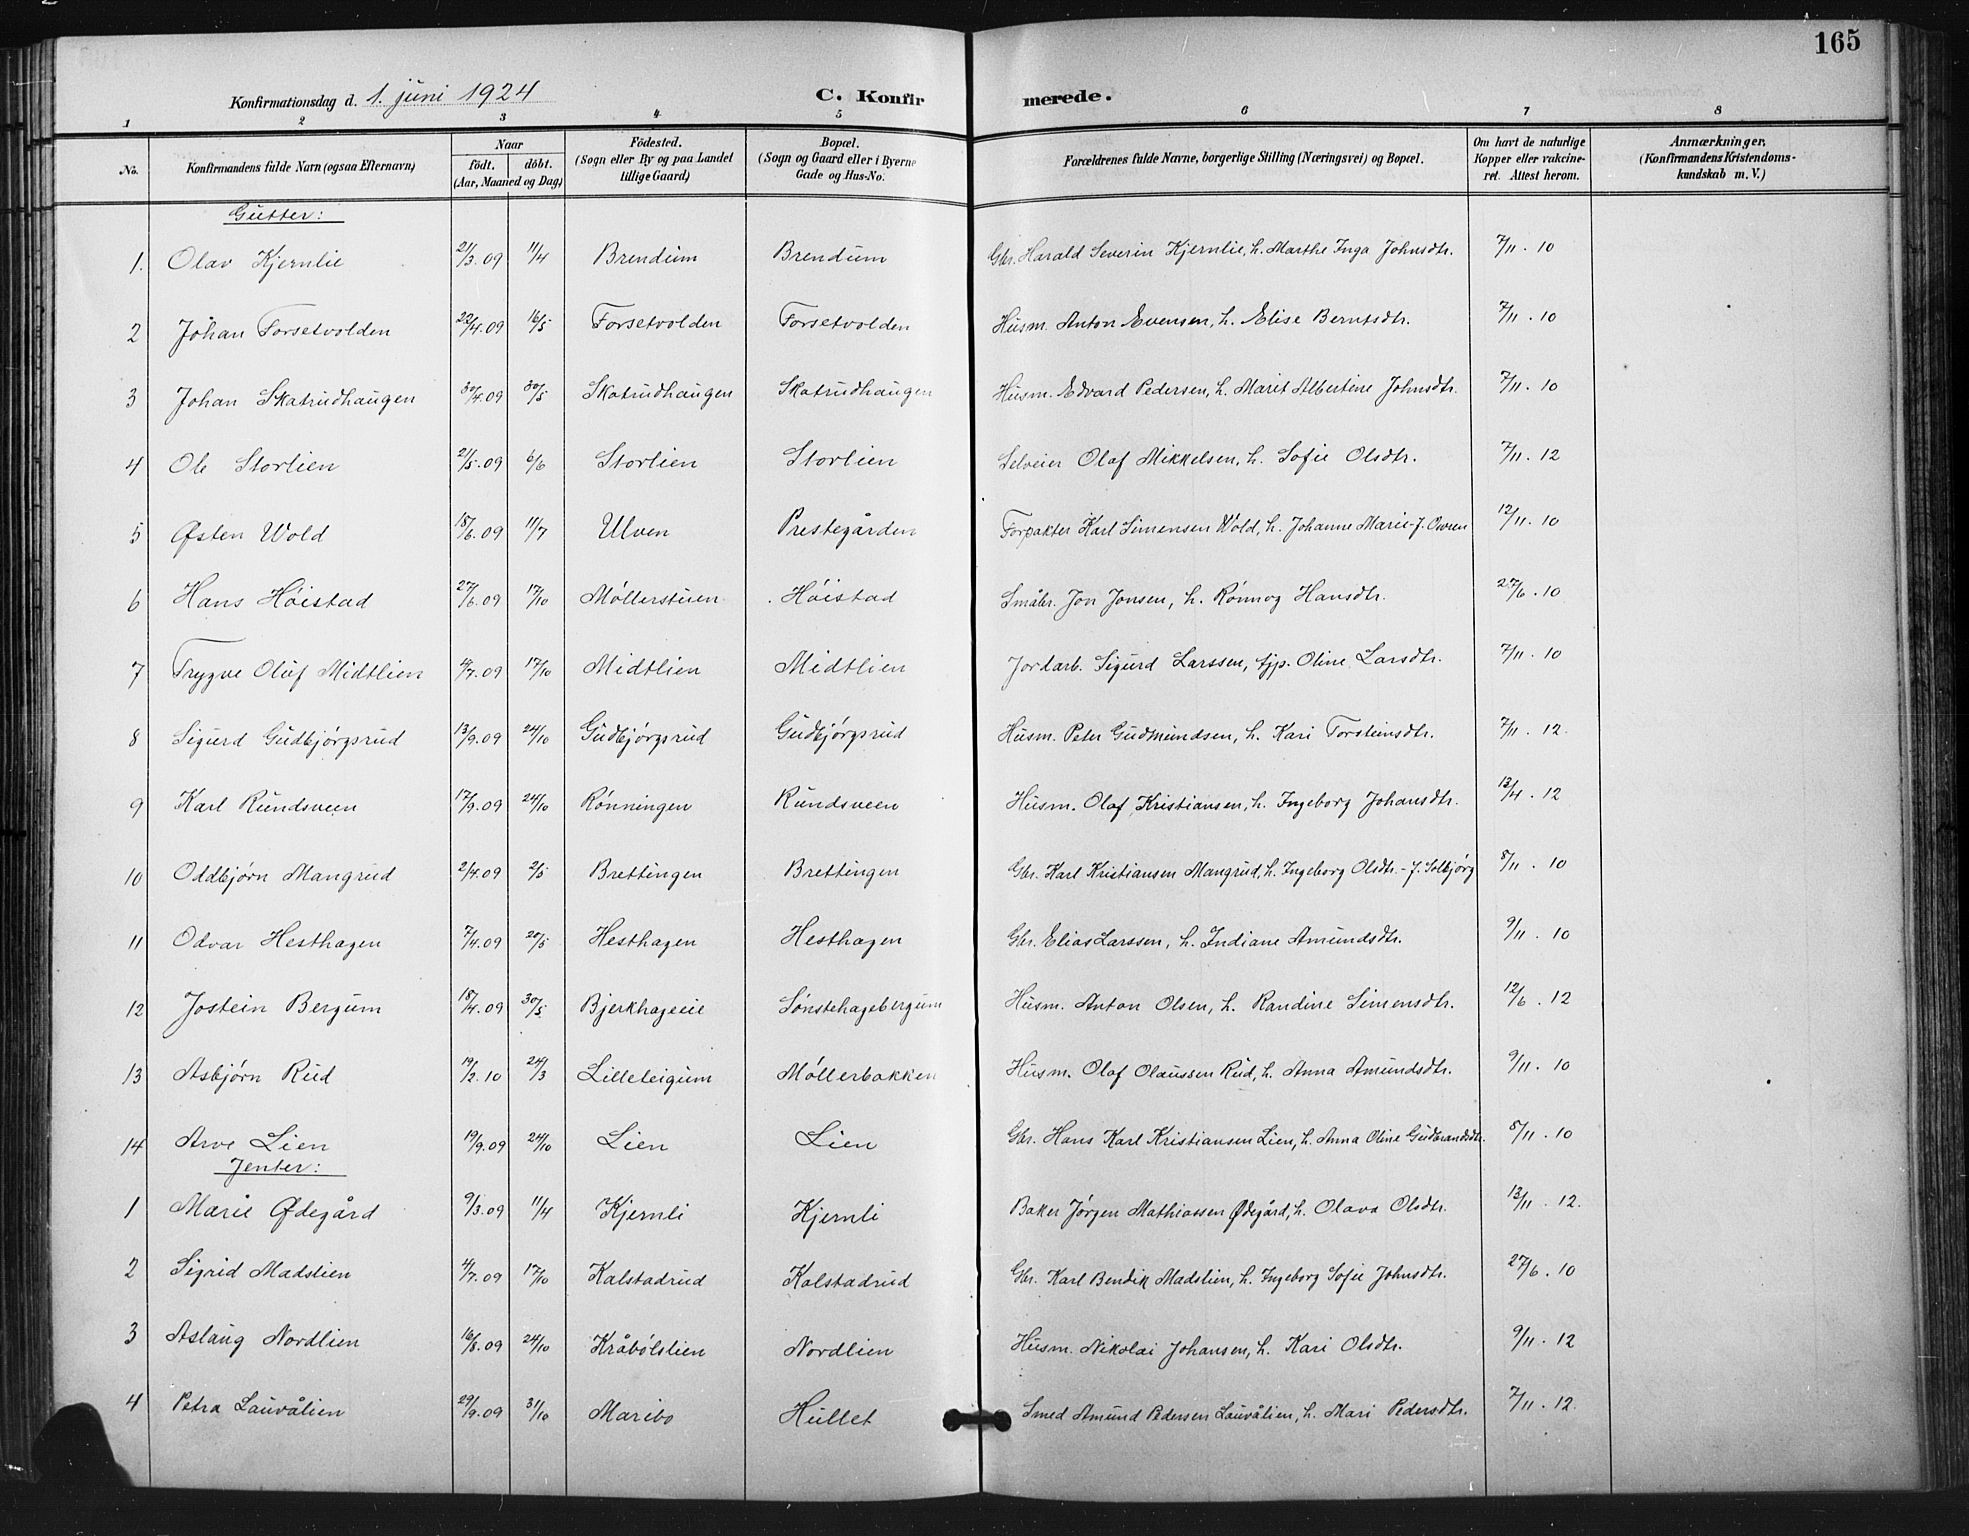 165
Konfirmationsdag d. 1. juni 1924 C. Konfirmerede.
1 2 3 4 5 6 7 8
No. Konfirmandens fulde Navn (ogsaa Efternavn) Naar født. døbt. (Aar, Maaned og Dag) Fødested. (Sogn eller By og paa Landet tillige Gaard) Bopæl. (Sogn og Gaard eller i Byerne Gade og Hus-No. Forældrenes fulde Navne, borgerlige Stilling (Næringsvei) og Bopæl. Om havt de naturlige Kopper eller vakcineret. Attest herom. Anmærkninger, (Konfirmandens Kristendomskundskab m. V.)
Gutter:
1. Olav Kjernlie 21/3.09 11/4 Brendum Brendum Gbr. Harald Severin Kjernlie, h. Marthe Inga Johnsdtr. 7/11.10
2 Johan Forsetvolden 22/4.09 16/5 Forsetvolden Forsetvolden Husm. Anton Evensen, h. Elise Berntsdtr. 7/11.10
3 Johan Skatrudhaugen 30/4.09 30/5 Skatrudhaugen Skatrudhaugen Husm. Edvard Pedersen, h. Marit Albertine Johnsdtr. 7/11.10
4 Ole Storlien 21/5.09 6/6 Storlien Storlien Selveier Olaf Mikkelsen, h. Sofie Olsdtr. 7/11.12
5 Østen Wold 18/6.09 11/7 Ulven Prestegården Forpakter Karl Simensen Wold, h. Johanne Marie f. Oveen 12/11.10
6 Hans Høistad 27/6.09 17/10 Møllerstuen Høistad Småbr. Jon Jonsen, h. Rønnog Hansdtr. 27/6.10
7 Trygve Oluf Midtlien 4/7.09 17/10 Midtlien Midtlien Jordarb. Sigurd Larssen, tjp. Oline Larsdtr. 7/11.10
8 Sigurd Gudbjørgsrud 13/9.09 24/10 Gudbjørgsrud Gudbjørgsrud Husm. Peter Gudmundsen, h. Kari Torsteinsdtr. 7/11.12.
9 Karl Rundsveen 17/9.09 24/10 Rønningen Rundsveen Husm. Olaf Kristiansen, h. Ingeborg Johansdtr. 13/4.12
10 Oddbjørn Mangrud 2/4.09 2/5 Brettingen Brettingen Gbr. Karl Kristiansen Mangrud, h. Ingeborg Olsdtr. - f. Solbjørg 8/11.10
11 Odvar Hesthagen 7/4.09 20/5 Hesthagen Hesthagen Gbr. Elias Larssen, h. Indiane Amundsdtr. 9/11.10
12 Jostein Bergum 18/4.09 30/5 Bjerkhageeie Sønstehagebergum Husm. Anton Olsen, h. Randine Simensdtr. 12/6.12
13 Asbjørn Rud 19/2.10 24/3 Lilleleigum Møllerbakken Husm. Olaf Olaussen Rud, h. Anna Amundsdtr. 9/11.10
14 Arve Lien 19/9.09 24/10 Lien Lien Gbr. Hans Karl Kristiansen Lien, h. Anna Oline Gudbrandsdtr. 8/11.10
Jenter:
1 Marie Ødegård 9/3.09 11/4 Kjernli Kjernli Baker Jørgen Mathiassen Ødegård, h. Olava Olsdtr. 13/11.12.
2 Sigrid Madslien 4/7.09 17/10 Kalstadrud Kalstadrud Gbr. Karl Bendik Madslien, h. Ingeborg Sofie Johnsdtr. 27/6.10
3 Aslaug Nordlien 16/8.09 24/10 Kråbølslien Nordlien Husm. Nikolai Johansen, h. Kari Olsdtr. 9/11.12
4 Petra Lauvålien 29/9.09 31/10 Maribo Hullet Smed Amund Pedersen Lauvålien, h. Mari Pedersdtr. 7/11.12.